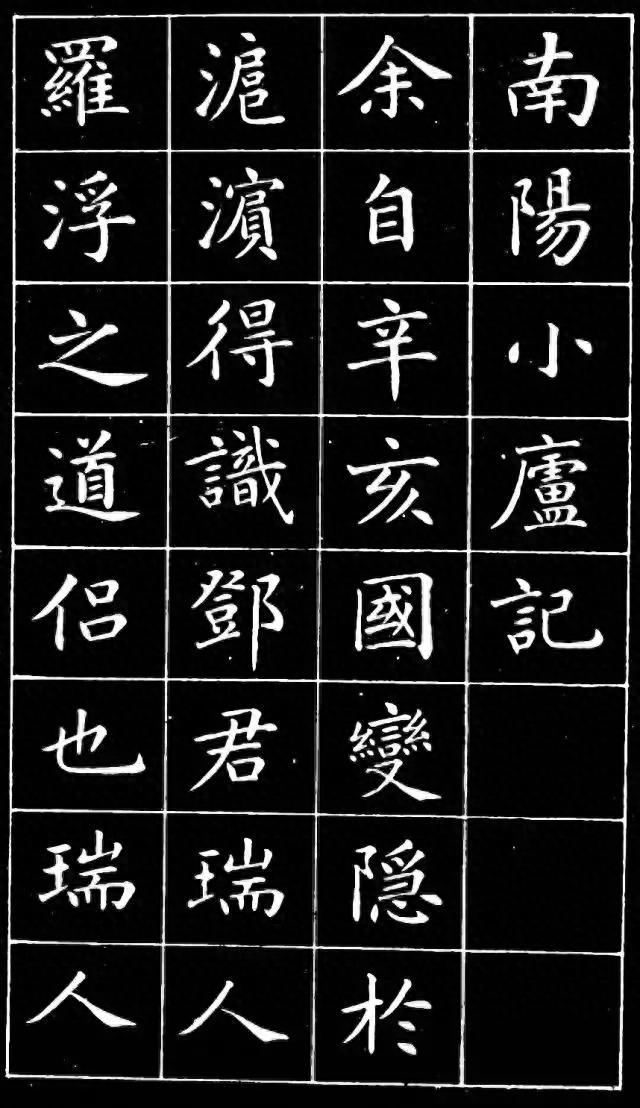 南陽小廬記
余自辛亥國變隱於
滬濵得識鄧君瑞人
羅浮之道侣也瑞人